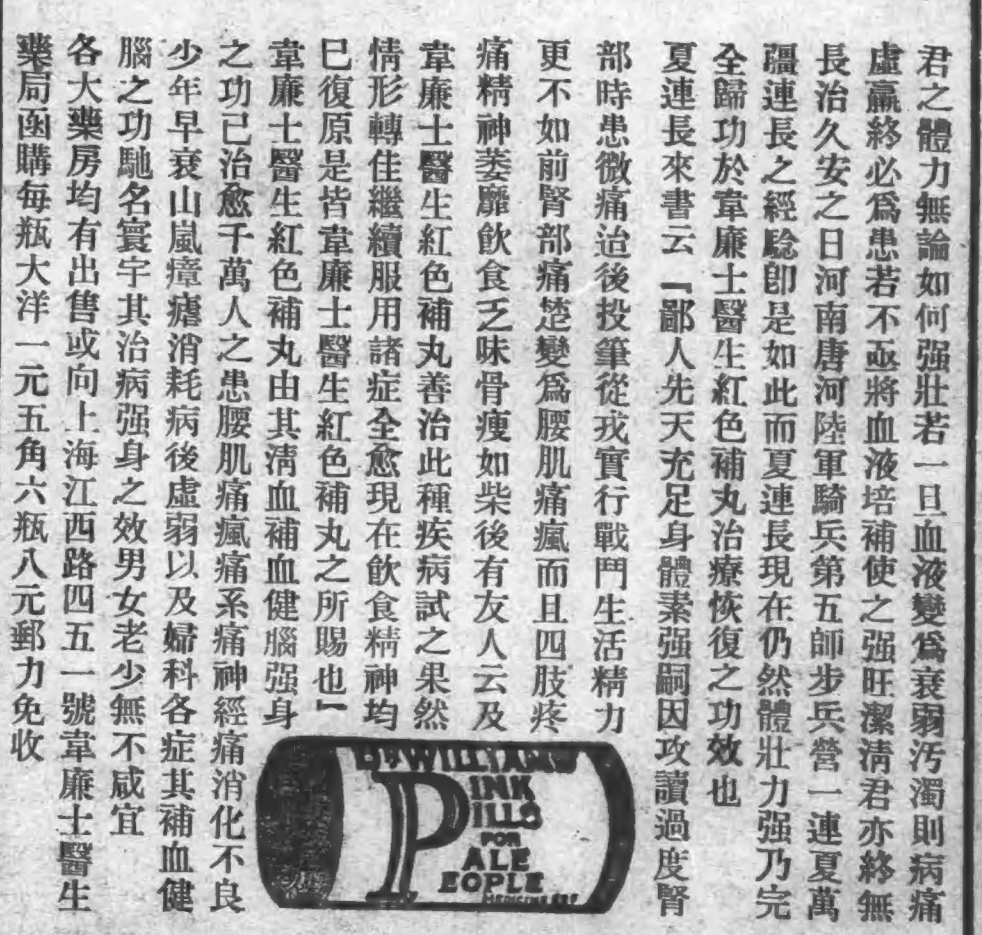 君之體力無論如何强壯若一旦血液變爲衰弱汚濁則病痛
虛羸終必爲患若不亟將血液培補使之强旺潔清君亦終無
長治久安之日河南唐河陸軍騎兵第五師步兵營一連夏萬
疆連長之經騐卽是如此而夏連長現在仍然體壯力强乃完
全歸功於韋廉士醫生紅色補丸治療恢復之功效也
夏連長來書云『鄙人先天充足身體素强嗣因攻讀過度腎
部時患微痛迨後投筆從戎實行戰鬥生活精力
更不如前腎部痛楚變爲腰肌痛瘋而且四肢疼
痛精神萎靡飲食乏味骨瘦如柴後有友人云及
韋廉士醫生紅色補丸善治此種疾病試之果然
情形轉佳繼續服用諸症全愈現在飲食精神均
已復原是皆韋廉士醫生紅色補丸之所賜也』
韋廉士醫生紅色補丸由其淸血補血健腦强身
之功已治愈千萬人之患腰肌痛瘋痛系痛神經痛消化不良
少年早衰山嵐瘴瘧消耗病後虛弱以及婦科各症其補血健
腦之功馳名寰宇其治病强身之效男女老少無不咸宜
各大藥房均有出售或向上海江西路四五一號韋廉士醫生
藥局函購每瓶大洋一元五角六瓶八元郵力免收
DR WILLIAMS
PINK
PILLS
FOR
PALE
PEOPLE